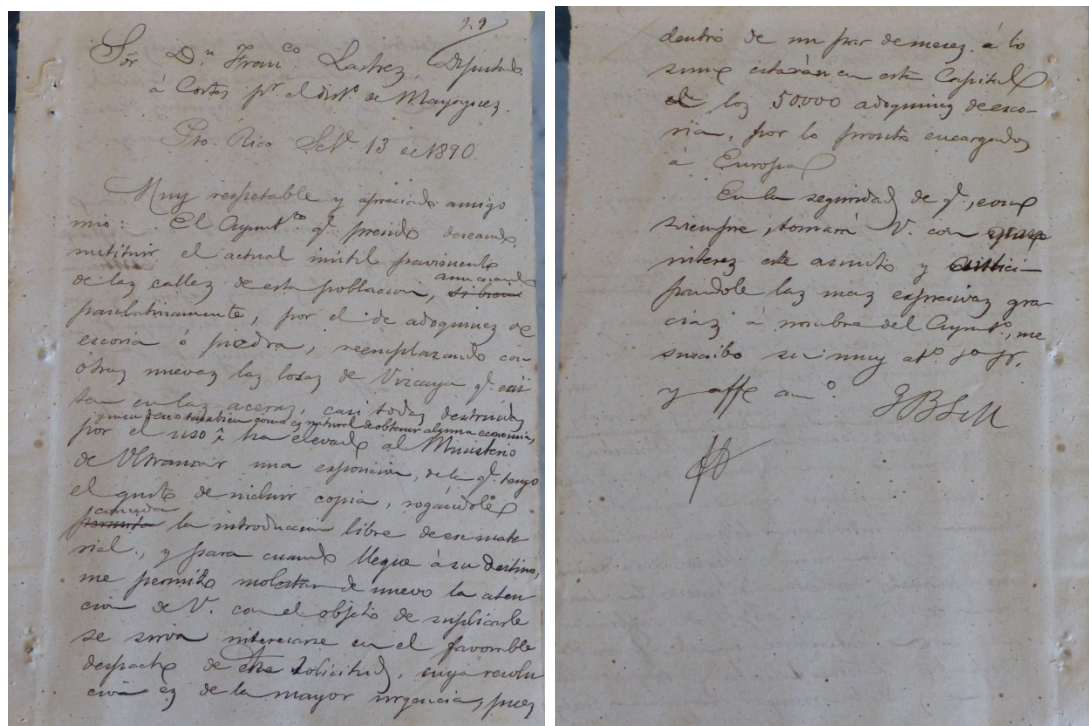 29
Sór Dn. Franco. Lastres, Diputado
á Cortes pr. el dist. de Mayaguez.
Pto. Rico Set. 13 de 1890.
Muy respetable y apreciado amigo
mio: El Ayuntto. qe. presido deseando
sustituir el actual inútil pavimento
de las calles de esta poblacion, aunque sea si bien
paulatinamente, por el de adoquines de
escoria ó piedra, reemplazando con
otras nuevas las losas de Vizcaya qe. exis
ten en las aceras, casi todas destruidas
y como deseo tambien como es natural de obtener alguna economia,
por el uso ha elevado al Ministerio
de Ultramar una exposicion, de la qe. tengo
el gusto de incluir copia, rogándole
conceda
permita la introduccion libre de ese mate
rial, y para cuando llegue á su destino,
me permito molestar de nuevo la aten
ción de V. con el objeto de suplicarle
se sirva interesarse en el favorable
despacho de esta solicitud, cuya resolu
ción es de la mayor urgencia, pues
dentro de un par de meses á lo
sumo estarán en esta Capital
los 50.000 adoquines de esco-
ria, por lo pronto encargados
á Europa
En la seguridad de qe., como
siempre, tomará V. con
interes este asunto y antici
pándole las mas expresivas gra
cias á nombre del Ayuntto., me
suscribo su muy ato. s. s.
y affo amo.